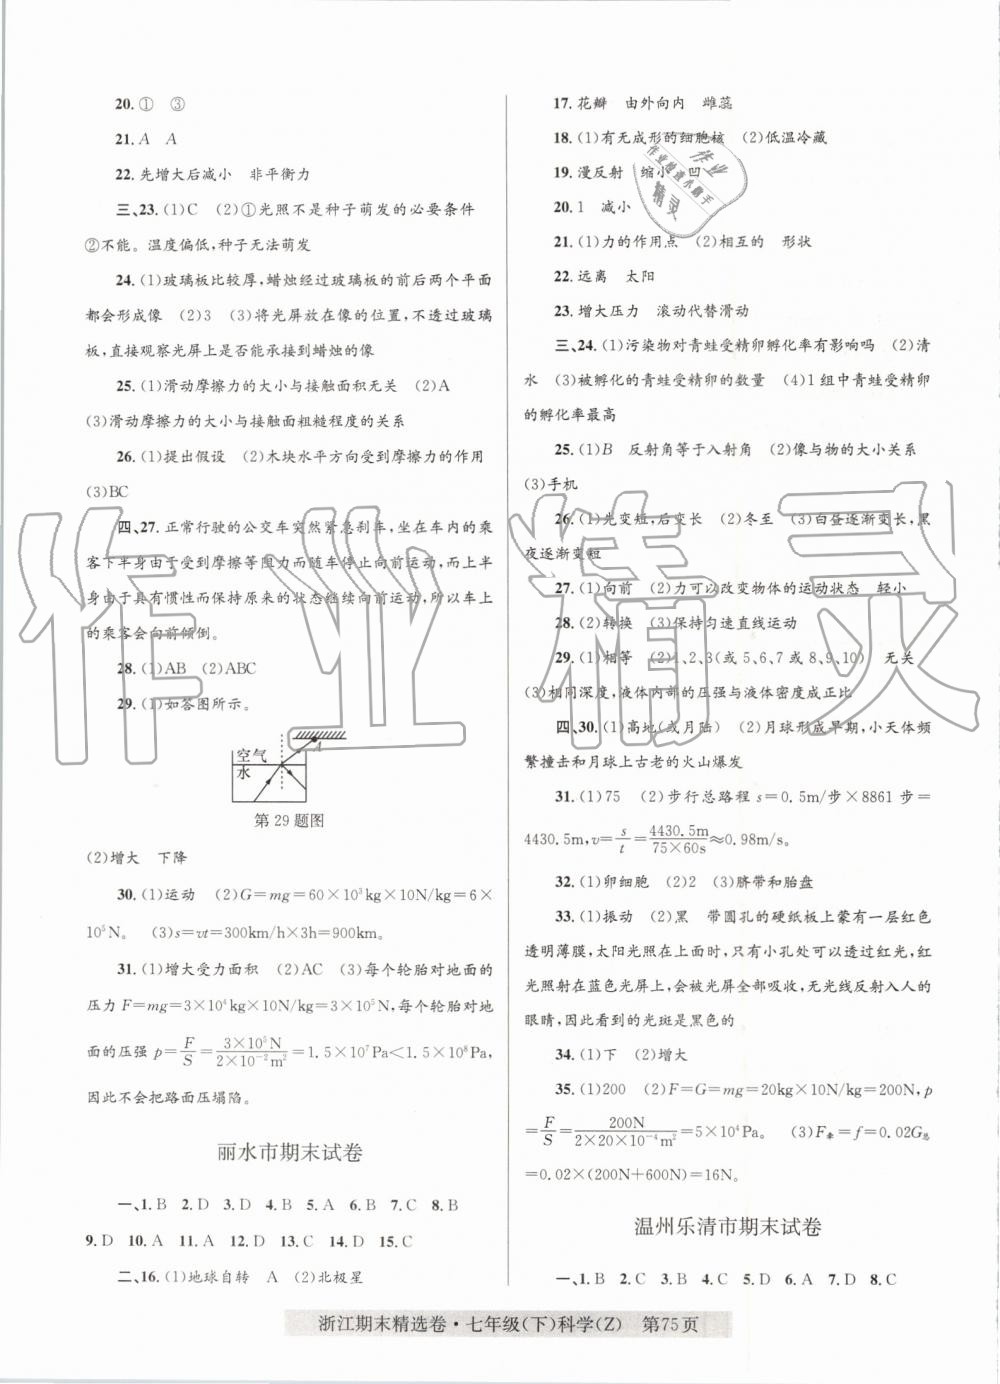 20.① ③
21.A A
22.先增大后减小 非平衡力
三、23.(1)C (2)①光照不是种子萌发的必要条件
②不能。温度偏低,种子无法萌发
24.(1)玻璃板比较厚,蜡烛经过玻璃板的前后两个平面
都会形成像 (2)3 (3)将光屏放在像的位置,不透过玻璃
板,直接观察光屏上是否能承接到蜡烛的像
25.(1)滑动摩擦力的大小与接触面积无关 (2)A
(3)滑动摩擦力的大小与接触面粗糙程度的关系
26.(1)提出假设 (2)木块水平方向受到摩擦力的作用
(3)BC
四、27.正常行驶的公交车突然紧急刹车,坐在车内的乘
客下半身由于受到摩擦等阻力而随车停止运动,而上半
身由于具有惯性而保持原来的状态继续向前运动,所以车上
的乘客会向前倾倒。
28.(1)AB (2)ABC
29.(1)如答图所示。
A
空气
水
第29题图
(2)增大 下降
30.(1)运动 (2)G=mg=60×10³kg×10N/kg=6×
10⁵N。 (3)s=vt=300km/h×3h=900km。
31.(1)增大受力面积 (2)AC (3)每个轮胎对地面的
压力F=mg=3×10⁴kg×10N/kg=3×10⁵N,每个轮胎对地
面的压强 p=F/S=3×10⁵N/2×10⁻²m²=1.5×10⁷Pa<1.5×10⁸Pa,
因此不会把路面压塌陷。
丽水市期末试卷
一、1.B 2.D 3.D 4.D 5.A 6.B 7.C 8.B
9.D 10.A 11.A 12.D 13.C 14.D 15.C
二、16.(1)地球自转 A (2)北极星
17.花瓣 由外向内 雌蕊
18.(1)有无成形的细胞核 (2)低温冷藏
19.漫反射 缩小 凹
20.1 减小
21.(1)力的作用点 (2)相互的 形状
22.远离 太阳
23.增大压力 滚动代替滑动
三、24.(1)污染物对青蛙受精卵孵化率有影响吗 (2)清
水 (3)被孵化的青蛙受精卵的数量 (4)1组中青蛙受精卵
的孵化率最高
25.(1)B 反射角等于入射角 (2)像与物的大小关系
(3)手机
26.(1)先变短,后变长 (2)冬至 (3)白昼逐渐变长,黑
夜逐渐变短
27.(1)向前 (2)力可以改变物体的运动状态 轻小
28.(2)转换 (3)保持匀速直线运动
29.(1)相等 (2)1、2、3(或5、6、7或8、9、10) 无关
(3)相同深度,液体内部的压强与液体密度成正比
四、30.(1)高地(或月陆) (2)月球形成早期,小天体频
繁撞击和月球上古老的火山爆发
31.(1)75 (2)步行总路程 s=0.5m/步×8861步=
4430.5m,v=s/t=4430.5m/75×60s≈0.98m/s。
32.(1)卵细胞 (2)2 (3)脐带和胎盘
33.(1)振动 (2)黑 带圆孔的硬纸板上蒙有一层红色
透明薄膜,太阳光照在上面时,只有小孔处可以透过红光,红
光照射在蓝色光屏上,会被光屏全部吸收,无光线反射入人的
眼睛,因此看到的光斑是黑色的
34.(1)下 (2)增大
35.(1)200 (2)F=G=mg=20kg×10N/kg=200N,p
=F/S=200N/2×20×10⁻⁴m²=5×10⁴Pa。 (3)F牵=f=0.02G总
=0.02×(200N+600N)=16N。
温州乐清市期末试卷
一、1.B 2.C 3.C 4.B 5.D 6.D 7.D 8.C
浙江期末精选卷·七年级(下)科学(Z) 第75页
作业精灵
作业
作业检查小助手
精灵